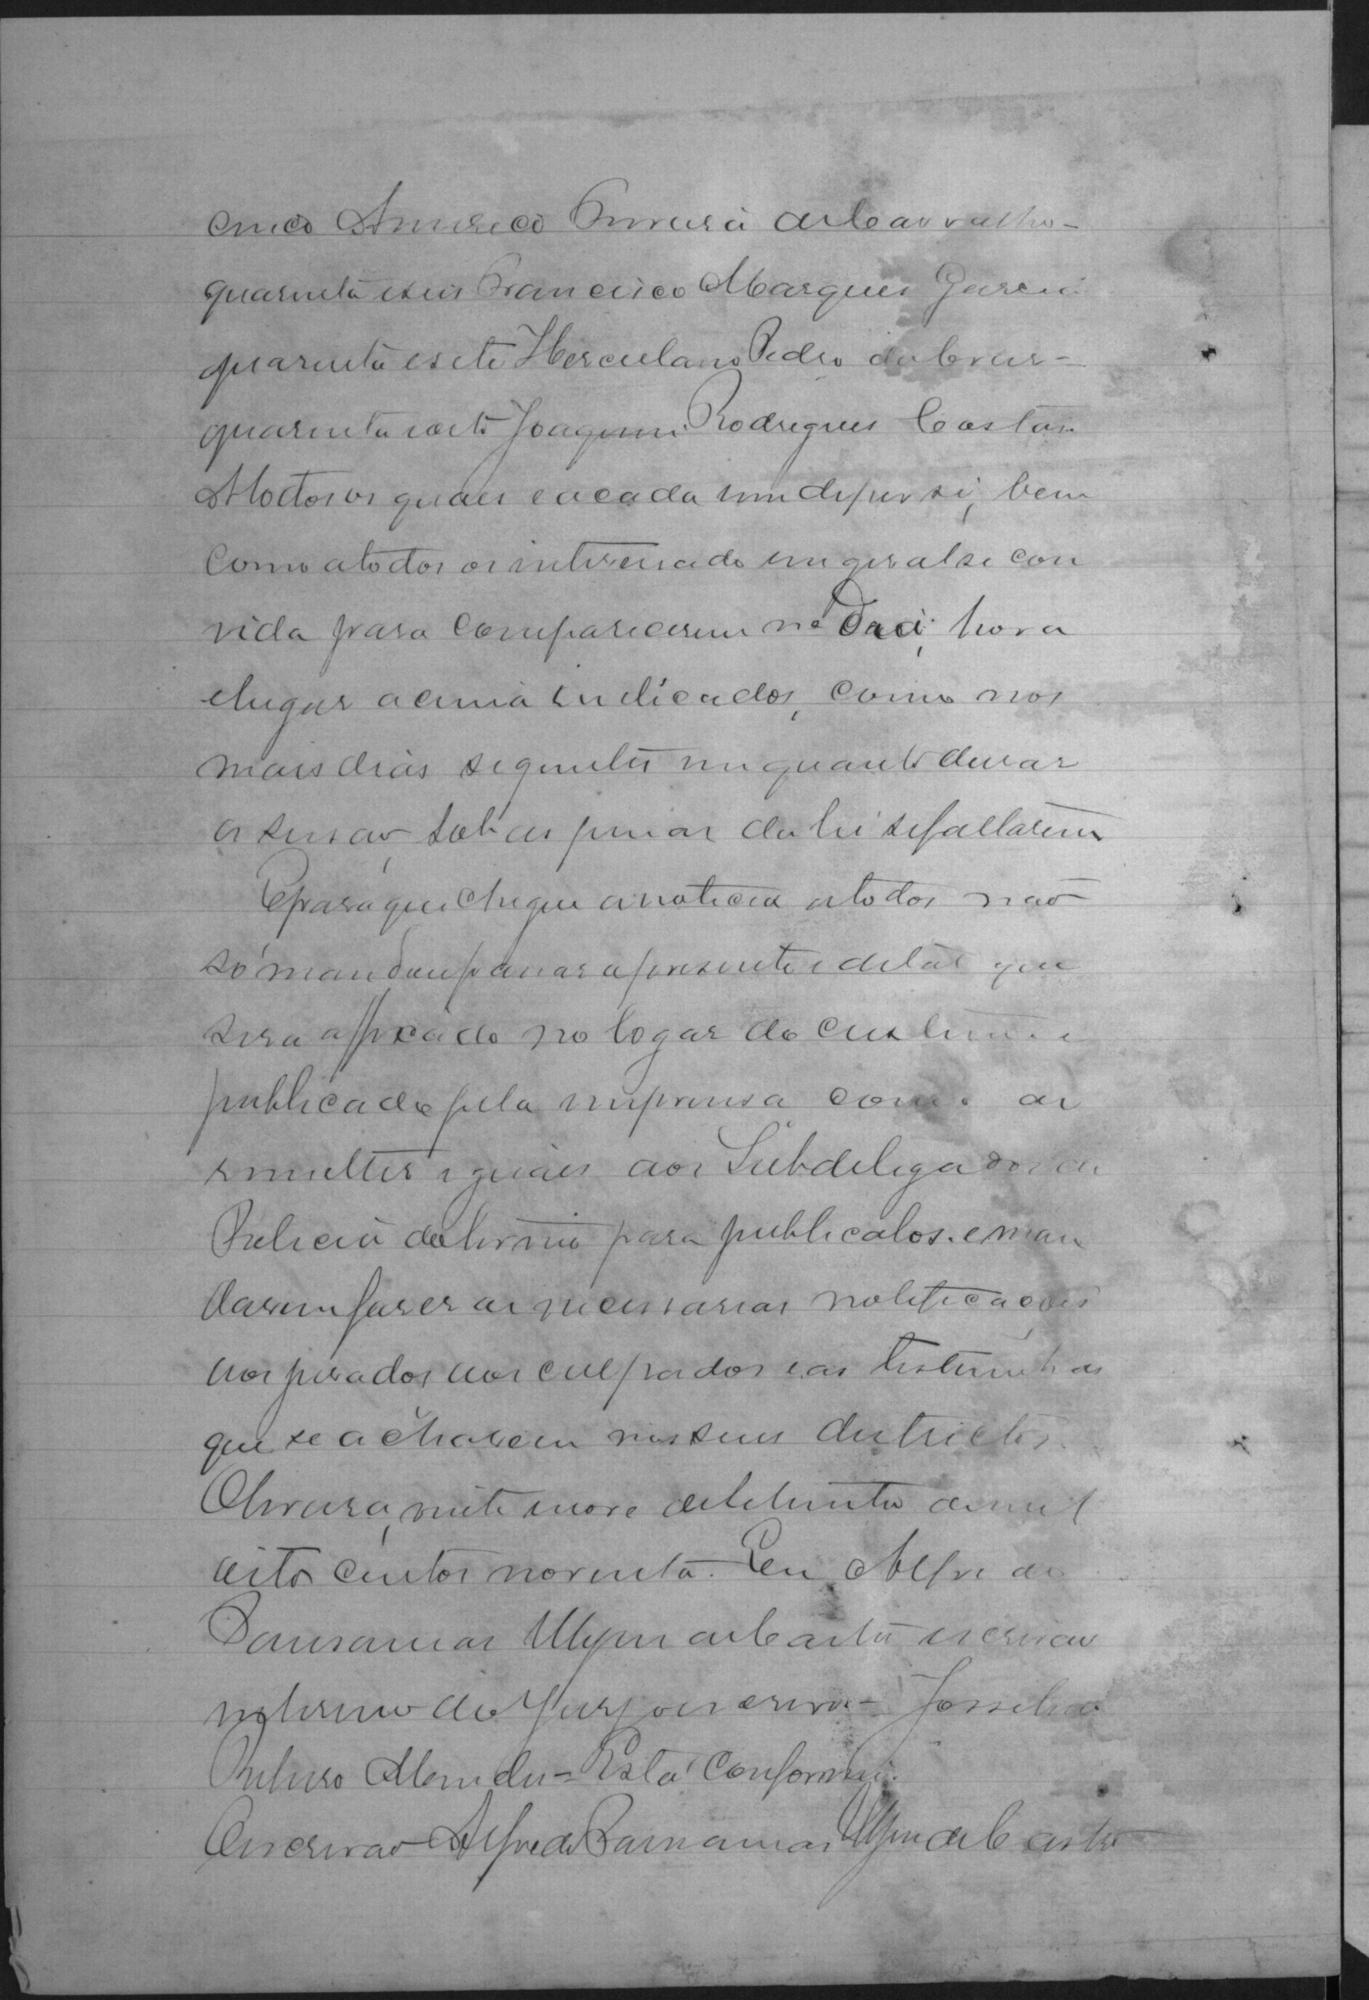 cinco Americo Pereira de Carvalho –
quarenta e seis Francisco Marques Garcia
quarenta e sete Herculano Pedro da Cruz –
quarenta e oito Joaquim Rodrigues Costa
A todos os quaes e a cada um de per si, bem
como a todos os interessado em geral se con
vida para comparecerem no dia, hora
e lugar acima indicados, como nos
mais dias seguintes em quanto durar
a sessão, sob as penas da lei se faltarem
E para que chegue a noticia a todos não
só mandou passar o presente edital que
sera affixado no logar do custume e
publicado pela imprensa como as
remetter iguaes aos Subdelegados de
Policia do termo para publicalos e man
darem fazer as necessarias notificações
aos jurados aos culpados e as testemunhas
que se acharem nos seus districtos.
Oliveira, vinte nove de Setembro de mil
oito centos noventa. Eu Alfredo
de Castro escrivão
interino do Jury o escrevi –
Está conforme.
O escrivão Alfredo de Castro